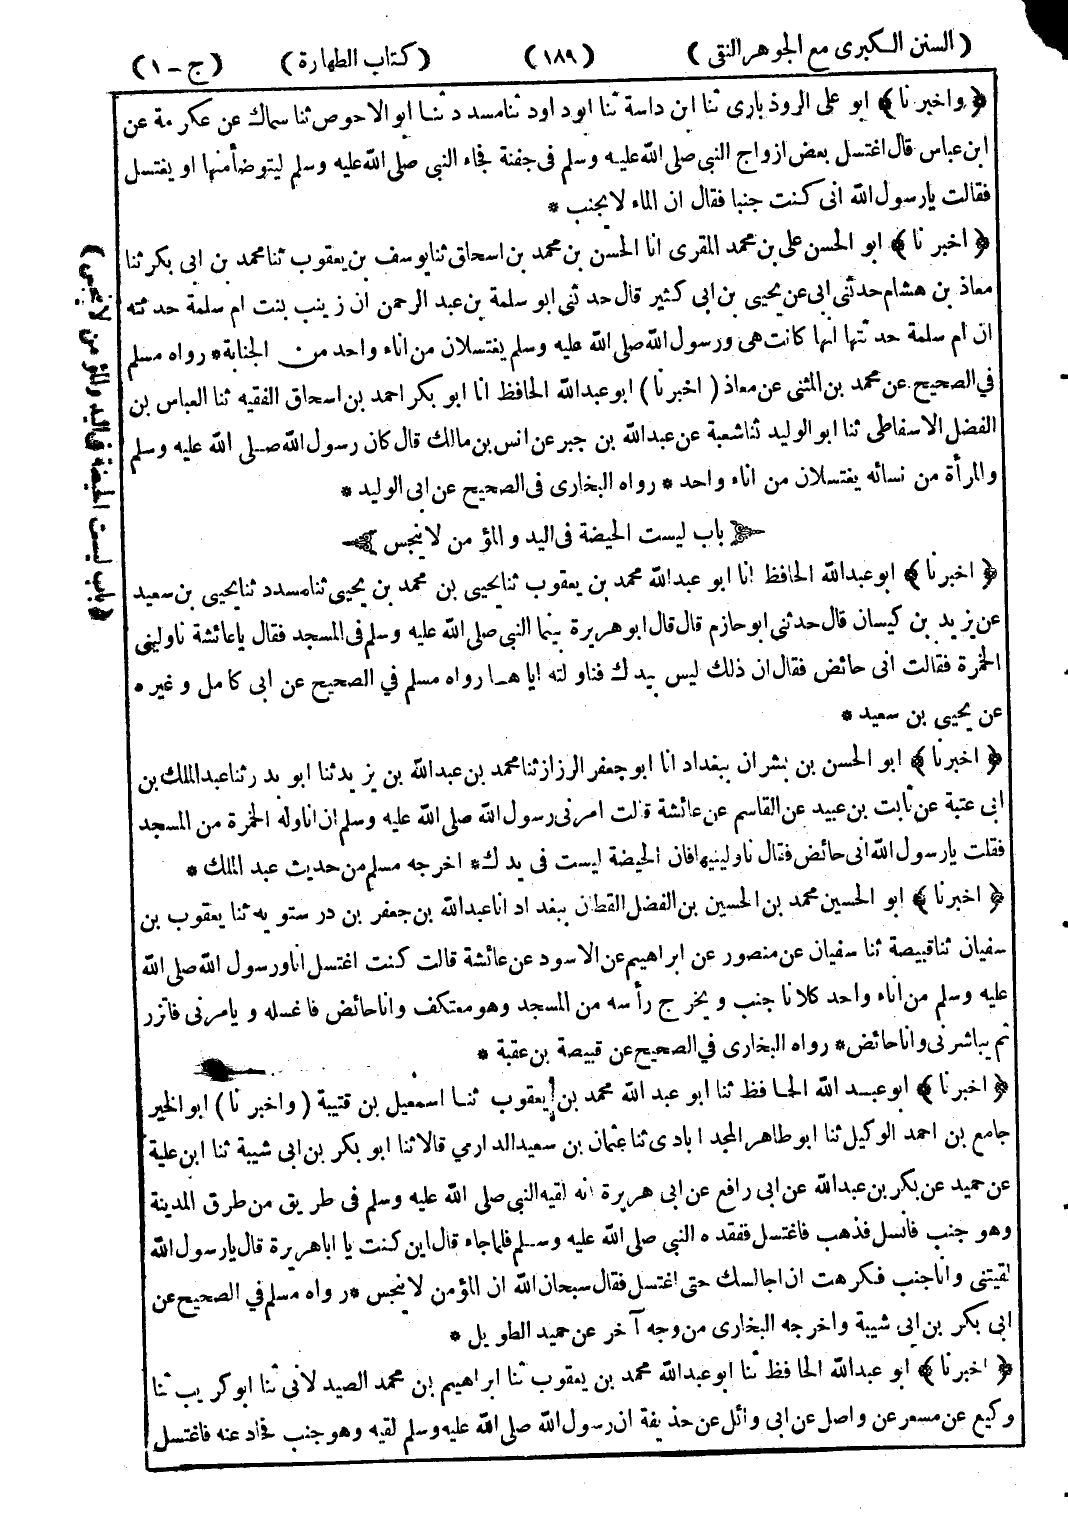 (السنن الكبرى مع الجوهر النقى) (١٨٩) (كتاب الطهارة) (ج-١)
﴿واخبرنا﴾ ابو على الروذبارى ثنا ابن داسة ثنا ابو داود ثنا مسدد ثنا ابو الاحوص ثنا سماك عن عكرمة عن
ابن عباس قال اغتسل بعض ازواج النبى صلى الله عليه وسلم فى جفنة فجاء النبى صلى الله عليه وسلم ليتوضأ منها او يغتسل
فقالت يا رسول الله انى كنت جنبا فقال ان الماء لا يجنب *
﴿اخبرنا﴾ ابو الحسن على بن محمد المقرى انا الحسن بن محمد بن اسحاق ثنا يوسف بن يعقوب ثنا محمد بن ابى بكر ثنا
معاذ بن هشام حدثنى ابى عن يحيى بن ابى كثير قال حدثنى ابو سلمة بن عبد الرحمن ان زينب بنت ام سلمة حدثته
ان ام سلمة حدثتها انها كانت هى ورسول الله صلى الله عليه وسلم يغتسلان من اناء واحد من الجنابة * رواه مسلم
في الصحيح عن محمد بن المثنى عن معاذ (اخبرنا) ابو عبد الله الحافظ انا ابو بكر احمد بن اسحاق الفقيه ثنا العباس بن
الفضل الاسفاطى ثنا ابو الوليد ثنا شعبة عن عبد الله بن جبر عن انس بن مالك قال كان رسول الله صلى الله عليه وسلم
والمرأة من نسائه يغتسلان من اناء واحد * رواه البخارى فى الصحيح عن ابى الوليد *
﴿باب ليست الحيضة فى اليد والمؤمن لا ينجس﴾
﴿اخبرنا﴾ ابو عبد الله الحافظ انا ابو عبد الله محمد بن يعقوب ثنا يحيى بن محمد بن يحيى ثنا مسدد ثنا يحيى بن سعيد
عن يزيد بن كيسان قال حدثنى ابو حازم قال قال ابو هريرة بينما النبى صلى الله عليه وسلم فى المسجد فقال يا عائشة ناولينى
الخمرة فقالت انى حائض فقال ان ذلك ليس بيدك فناولته اياها رواه مسلم في الصحيح عن ابى كامل وغيره
عن يحيى بن سعيد *
﴿اخبرنا﴾ ابو الحسن بن بشران ببغداد انا ابو جعفر الرزاز ثنا محمد بن عبد الله بن يزيد ثنا ابو بدر ثنا عبد الملك بن
ابى عتبة عن ثابت بن عبيد عن القاسم عن عائشة قالت امرنى رسول الله صلى الله عليه وسلم ان اناوله الخمرة من المسجد
فقلت يا رسول الله انى حائض فقال ناولينيها فان الحيضة ليست فى يدك * اخرجه مسلم من حديث عبد الملك *
﴿اخبرنا﴾ ابو الحسين محمد بن الحسين بن الفضل القطان ببغداد انا عبد الله بن جعفر بن درستويه ثنا يعقوب بن
سفيان ثنا قبيصة ثنا سفيان عن منصور عن ابراهيم عن الاسود عن عائشة قالت كنت اغتسل انا ورسول الله صلى الله
عليه وسلم من اناء واحد كلانا جنب ويخرج رأسه من المسجد وهو معتكف وانا حائض فاغسله ويامرنى فاتزر
ثم يباشرنى وانا حائض * رواه البخارى في الصحيح عن قبيصة بن عقبة *
﴿اخبرنا﴾ ابو عبد الله الحافظ ثنا ابو عبد الله محمد بن يعقوب ثنا اسمعيل بن قتيبة (واخبرنا) ابو الخير
جامع بن احمد الوكيل ثنا ابو طاهر المجد ابادى ثنا عثمان بن سعيد الدارمي قالا ثنا ابو بكر بن ابى شيبة ثنا ابن علية
عن حميد عن بكر بن عبد الله عن ابى رافع عن ابى هريرة انه لقيه النبى صلى الله عليه وسلم فى طريق من طرق المدينة
وهو جنب فانسل فذهب فاغتسل ففقده النبى صلى الله عليه وسلم فلما جاء قال اين كنت يا ابا هريرة قال يا رسول الله
لقيتنى وانا جنب فكرهت ان اجالسك حتى اغتسل فقال سبحان الله ان المؤمن لا ينجس * رواه مسلم في الصحيح عن
ابى بكر بن ابى شيبة واخرجه البخارى من وجه آخر عن حميد الطويل *
﴿اخبرنا﴾ ابو عبد الله الحافظ ثنا ابو عبد الله محمد بن يعقوب ثنا ابراهيم بن محمد الصيدلانى ثنا ابو كريب ثنا
وكيع عن مسعر عن واصل عن ابى وائل عن حذيفة ان رسول الله صلى الله عليه وسلم لقيه وهو جنب فحاد عنه فاغتسل
﴿باب ليست الحيضة فى اليد والمؤمن لا ينجس﴾